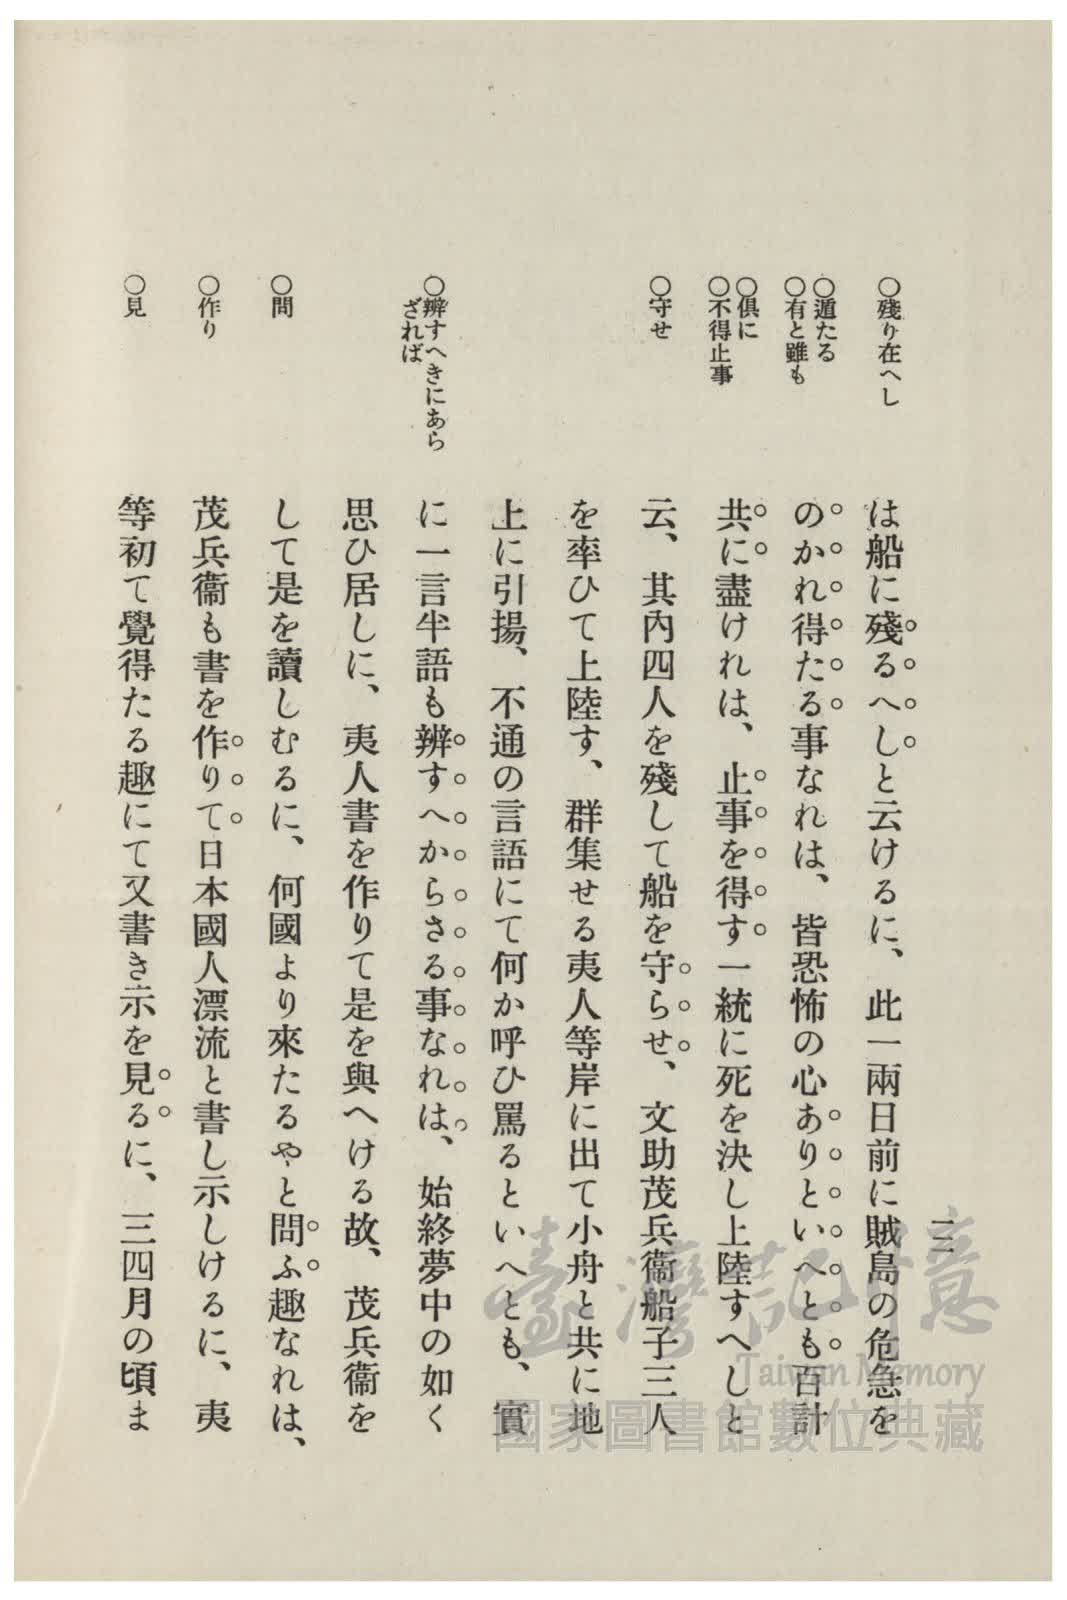 ○殘り在へし
○遁たる
○有と雖も
○俱に
○不得止事
○守せ
○辨すへきにあら
ざれば
○問
○作り
○見
は船に殘るへしと云けるに、此一兩日前に賊島の危急を
のかれ得たる事なれは、皆恐怖の心ありといへとも百計
共に盡けれは、止事を得す一統に死を決し上陸すへしと
云、其內四人を殘して船を守らせ、文助茂兵衞船子三人
を率ひて上陸す、群集せる夷人等岸に出て小舟と共に地
上に引揚、不通の言語にて何か呼ひ罵るといへとも、實
に一言半語も辨すへからさる事なれは、始終夢中の如く
思ひ居しに、夷人書を作りて是を與へける故、茂兵衞を
して是を讀しむるに、何國より來たるやと問ふ趣なれは、
茂兵衞も書を作りて日本國人漂流と書し示しけるに、夷
等初て覺得たる趣にて又書き示を見るに、三四月の頃ま
二
臺灣記憶
Taiwan Memory
國家圖書館數位典藏